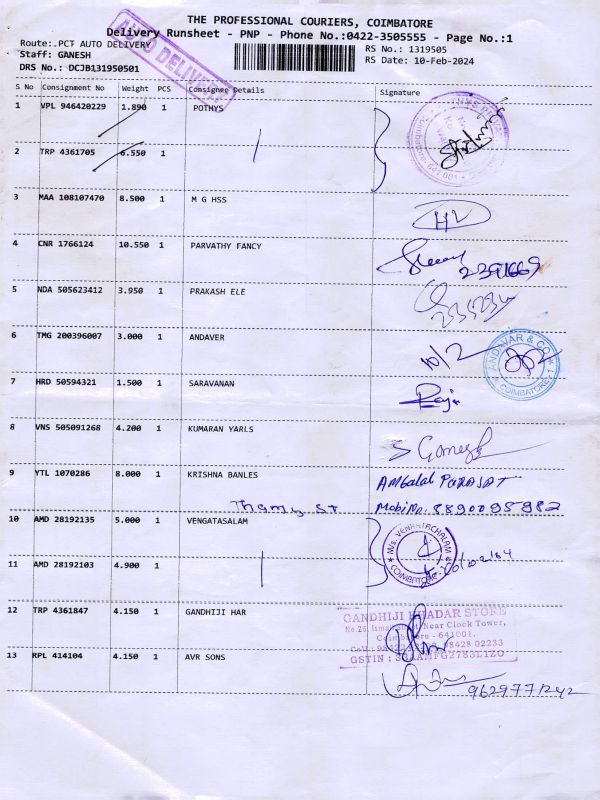 THE PROFESSIONAL COURIERS, COIMBATORE
Delivery Runsheet - PNP - Phone No.:0422-3505555 - Page No.:1
Route:.PCT AUTO DELIVERY
RS No.: 1319505
Staff: GANESH
RS Date: 10-Feb-2024
DRS No.: DCJB131950501
AUTO DELIVERY
S No Consignment No Weight PCS Consignee Details Signature
1 VPL 946420229 1.890 1 POTHYS
2 TRP 4361705 6.550 1
3 MAA 108107470 8.500 1 M G HSS
4 CNR 1766124 10.550 1 PARVATHY FANCY
5 NDA 505623412 3.950 1 PRAKASH ELE
6 TMG 200396007 3.000 1 ANDAVER
10/2
ANDAVAR & CO
COIMBATORE-1
7 HRD 50594321 1.500 1 SARAVANAN
Raja
8 VNS 505091268 4.200 1 KUMARAN YARLS
S Ganesh
9 YTL 1070286 8.000 1 KRISHNA BANLES
Ambalal
Mobi No: 8890095982
10 AMD 28192135 5.000 1 VENGATASALAM
M/s. VENKATACHALAM
COIMBATORE
11 AMD 28192103 4.900 1
12 TRP 4361847 4.150 1 GANDHIJI HAR
GANDHIJI KHADAR STORE
Near Clock Tower,
Coimbatore - 641001.
98428 02233
13 RPL 414104 4.150 1 AVR SONS
9629771242